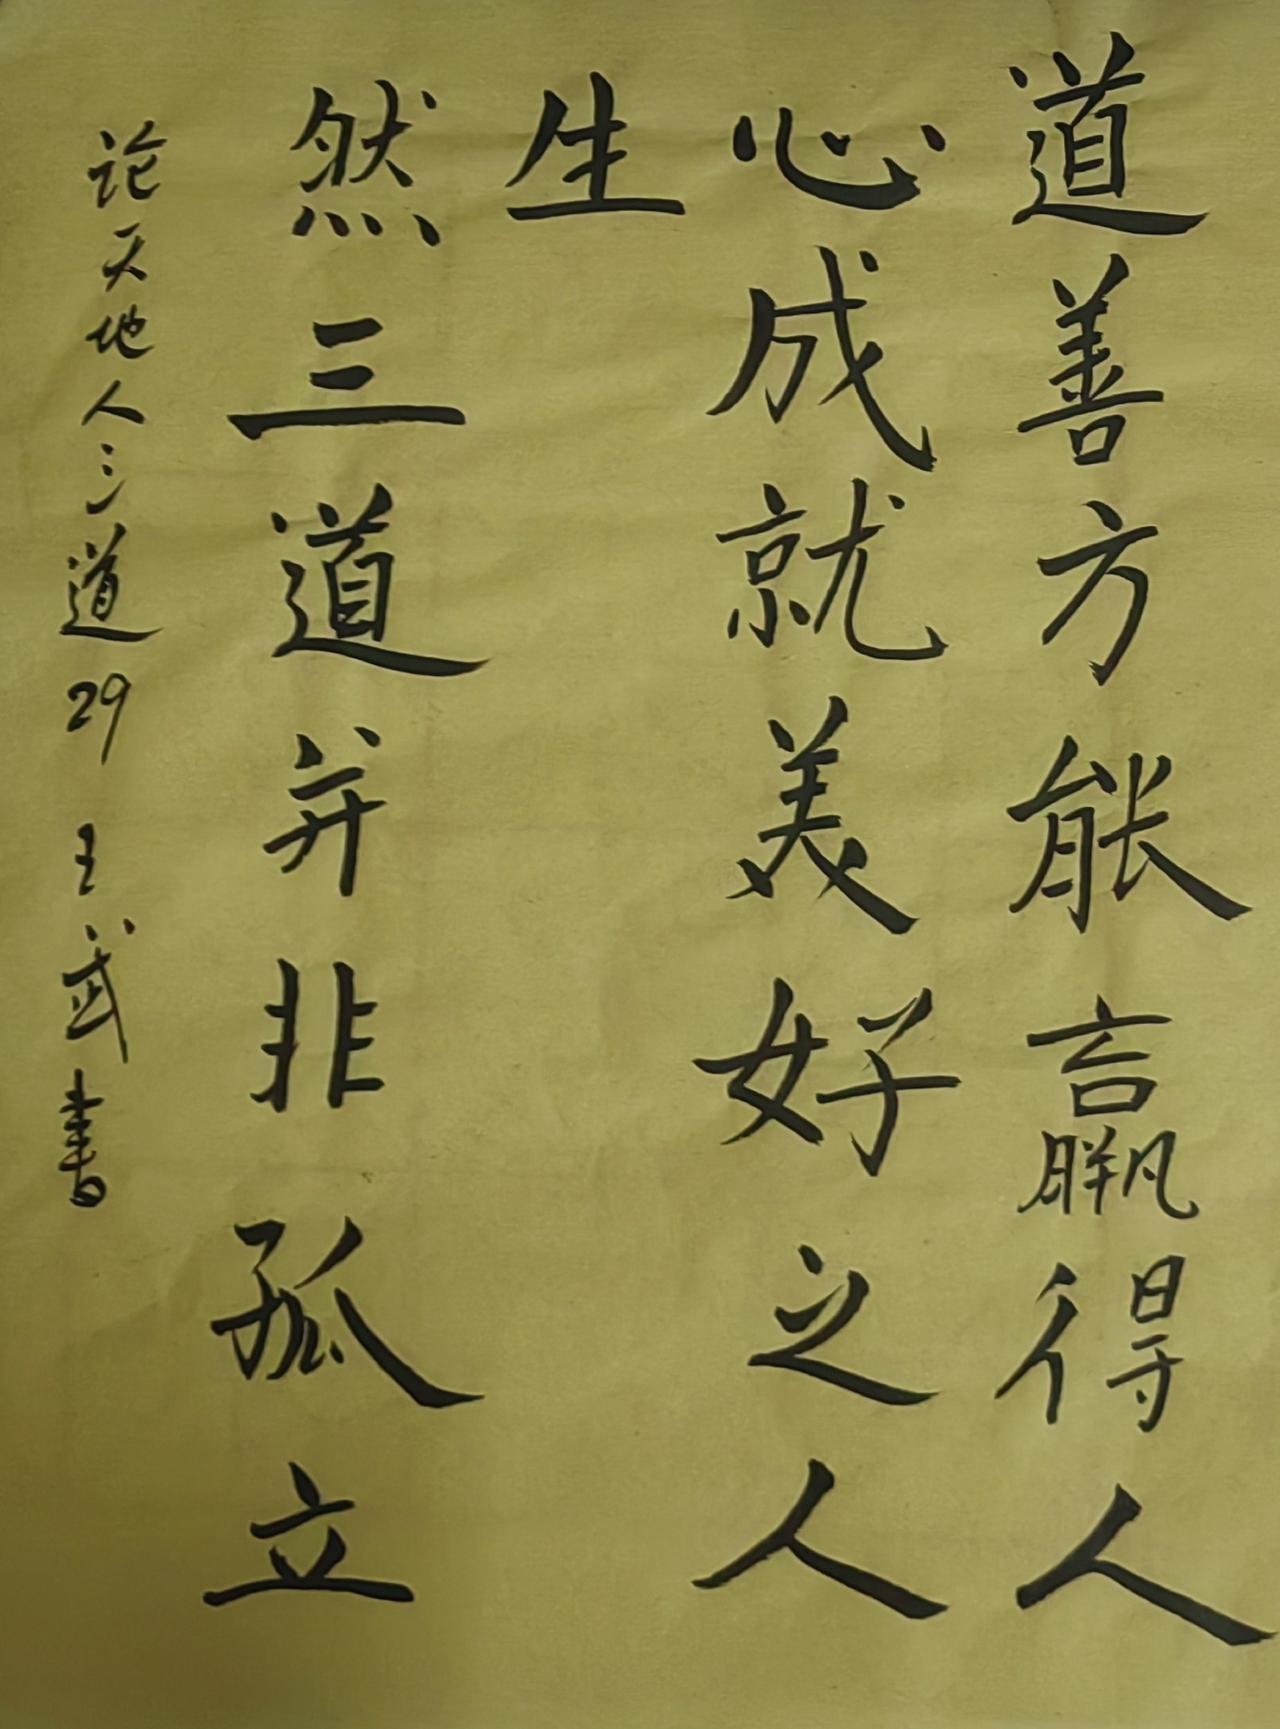 道善方能赢得人
心成就美好之人
生
然三道并非孤立
论天地人三道29 王武书